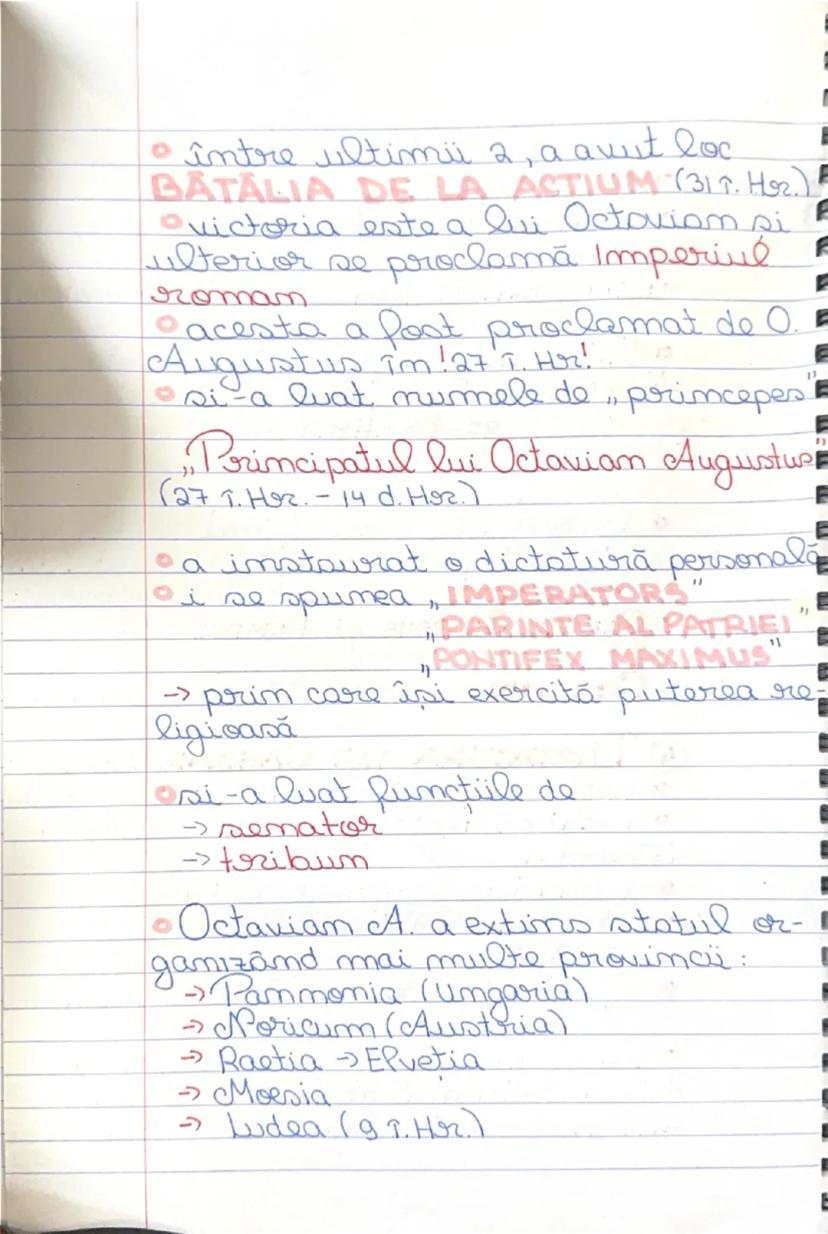 între ultimii 2, a avut loc
BĂTĂLIA DE LA ACTIUM (31 î. Hr.)
victoria este a lui Octavian și
ulterior se proclamă Imperiul
roman
acesta a fost proclamat de O.
Augustus în !27 î. Hr!
si-a luat numele de „princepes"
„Principatul lui Octavian Augustus"
(27 î. Hr. - 14 d. Hr.)
a instaurat o dictatură personală
i se spunea „IMPERATORS"
„PARINTE AL PATRIEI"
„PONTIFEX MAXIMUS"
-> prin care își exercită puterea re-
ligioasă
si-a luat funcțiile de
-> senator
-> tribun
Octavian A. a extins statul or-
ganizând mai multe provincii:
-> Pannonia (Ungaria)
-> Noricum (Austria)
-> Raetia -> Elveția
-> Moesia
-> Iudea (9 î. Hr.)